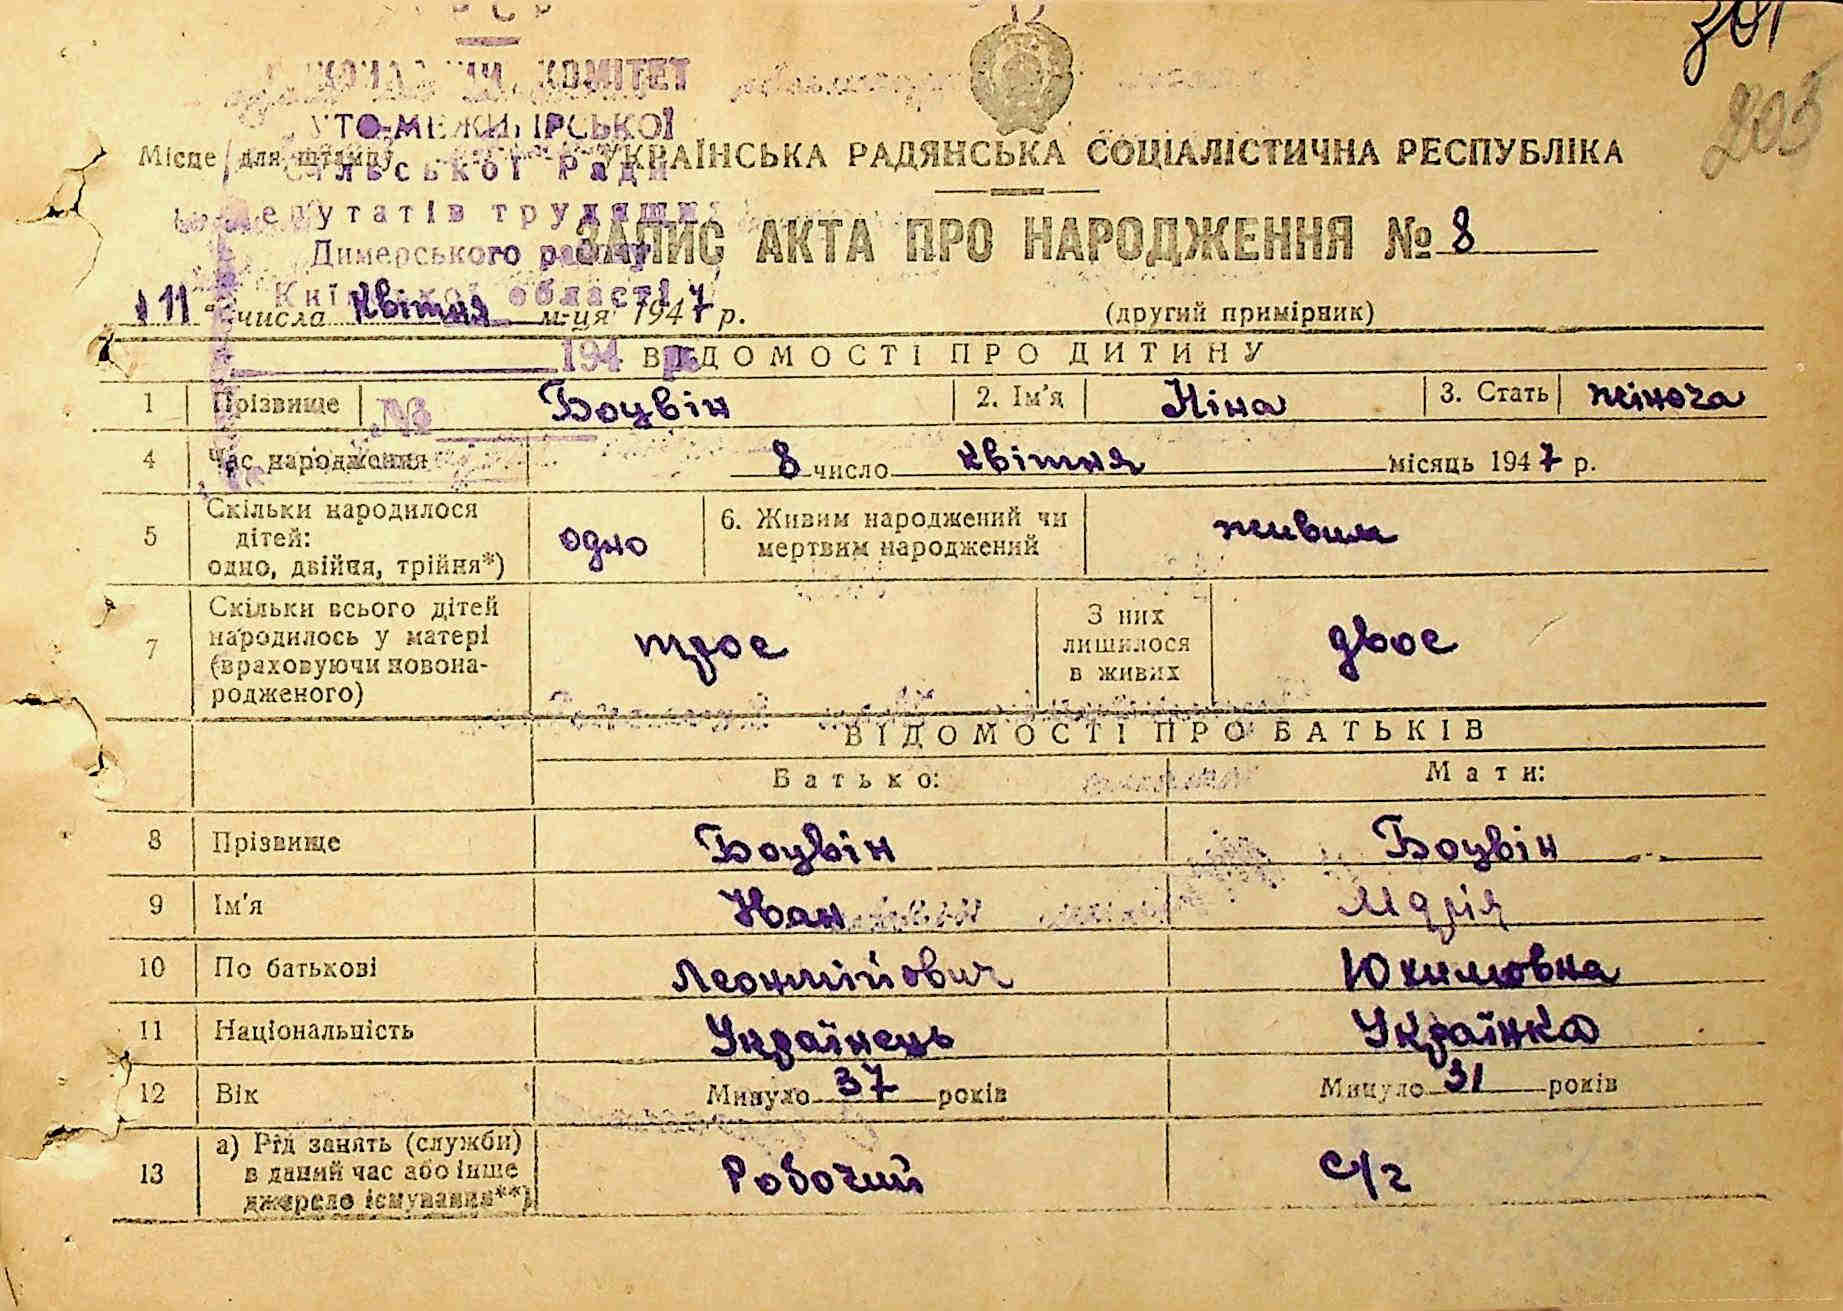 201
203
КОМІТЕТ
УТО-МЕЖИГІРСЬКОЇ
Місце для штампу УКРАЇНСЬКА РАДЯНСЬКА СОЦІАЛІСТИЧНА РЕСПУБЛІКА
СІЛЬСЬКОЇ Ради
депутатів трудящих
ЗАПИС АКТА ПРО НАРОДЖЕННЯ № 8
Димерського району
Київської області
"11" числа квітня м-ця 1947 р. (другий примірник)
194 р.
ВІДОМОСТІ ПРО ДИТИНУ
1 Прізвище Боцвін 2. Ім'я Ніна 3. Стать жіноча
№
4 Час народження 8 число квітня місяць 1947 р.
5 Скільки народилося дітей: одно, двійня, трійня*) одно 6. Живим народжений чи мертвим народжений живим
7 Скільки всього дітей народилось у матері (враховуючи новонародженого) троє З них лишилося в живих двоє
ВІДОМОСТІ ПРО БАТЬКІВ
Батько: Мати:
8 Прізвище Боцвін Боцвін
9 Ім'я Іван Марія
10 По батькові Леонтійович Юхимовна
11 Національність Українець Українка
12 Вік Минуло 37 років Минуло 31 років
13 а) Рід занять (служби) в даний час або інше джерело існування**) Робочий с/г